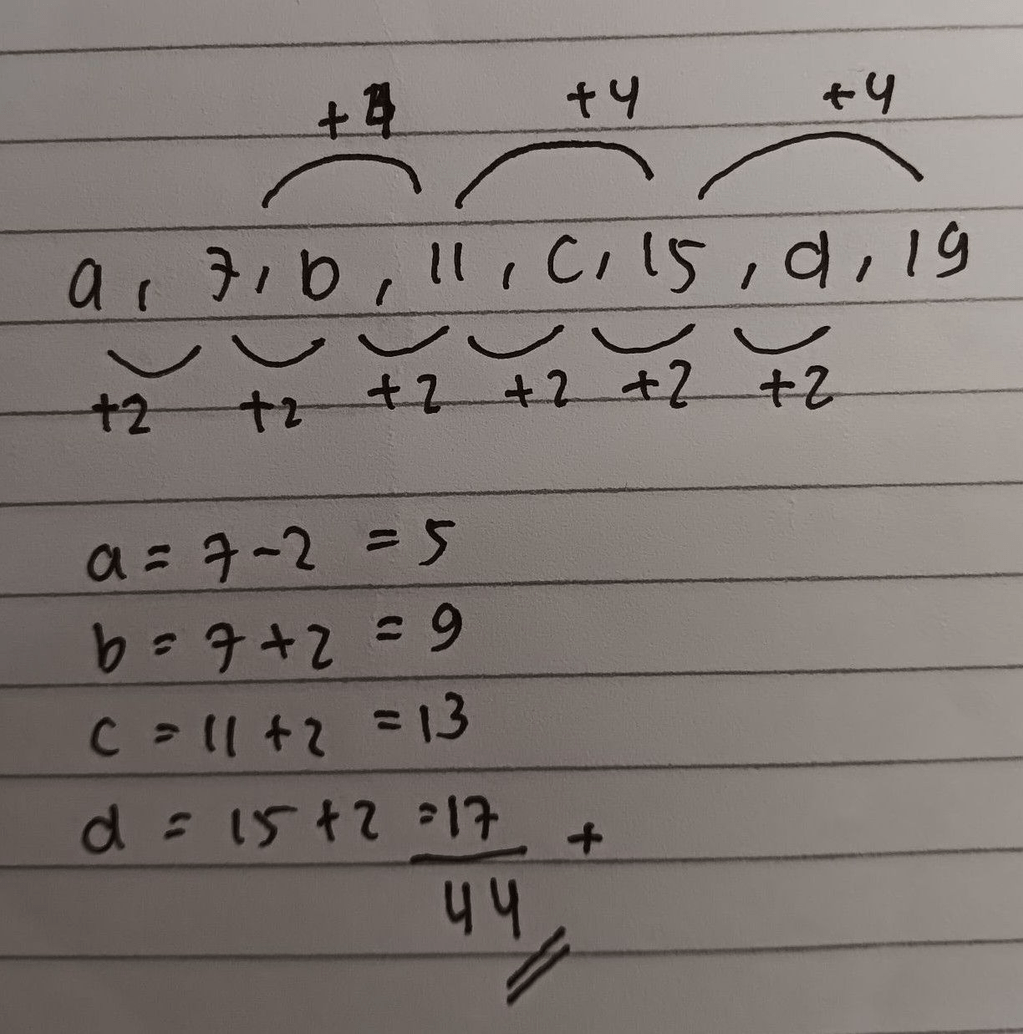 +4 +4 +4
a, 7, b, 11, c, 15, d, 19
+2 +2 +2 +2 +2 +2
a = 7 - 2 = 5
b = 7 + 2 = 9
c = 11 + 2 = 13
d = 15 + 2 = 17 +
44